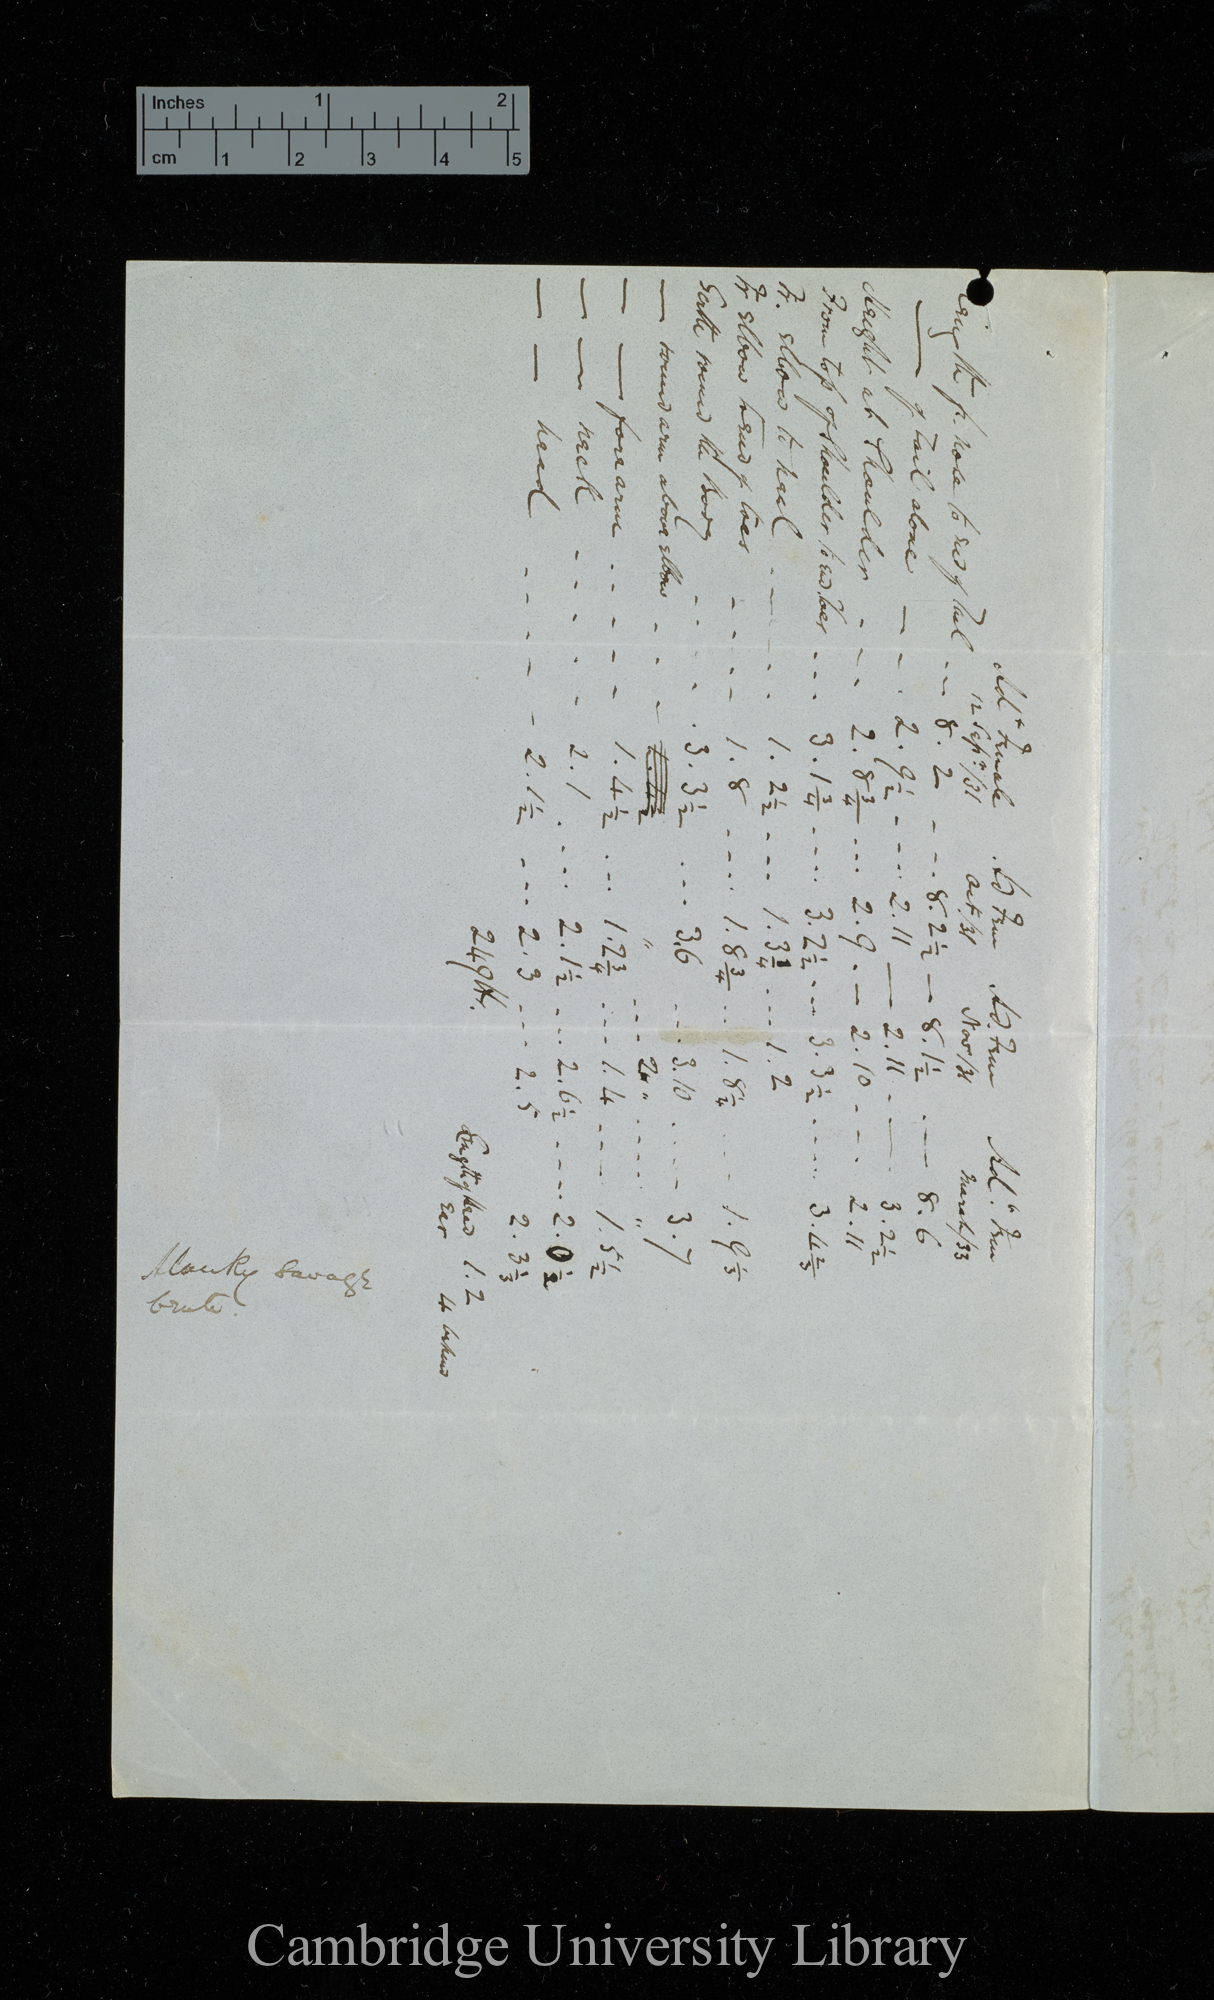 Inches 1 2
cm 1 2 3 4 5
Ad.t Female Ad Fem Ad. Fem Ad.t Fem
12 Sept/31 Oct/31 Nov/31 March/33
Length fr. nose to end of Tail - - - 8. 2 - - - 8. 2½ — 8. 1½ - — 8. 6
—— of Tail alone — - - 2. 9½ - - - - 2. 11 — 2. 11 - — 3. 2½
Height at Shoulder - - - 2. 8¾ - - - 2. 9 - — 2. 10 - - - 2. 11
From top of Shoulder to end toes - - - 3. 1¾ - - - - 3. 2½ - - 3. 3½ - - - - 3. 4⅔
Fr. elbow to heel - - - - 1. 2½ - - - 1. 3¼ - - - 1. 2
Fr elbow to end of toes - - - - 1. 8 - - - - 1. 8¾ - - 1. 8¼ - - - 1. 9⅓
Girth round the Body - - - - 3. 3½ - - - 3.6 - - - 3. 10 - - - - 3. 7
— round arm above elbow - - - " - - - 2 " - - - - "
— — forearm - - - - 1. 4½ - - - 1. 2¾ - - - 1. 4 - - - 1. 5½
— — neck - - - - 2. 1 - - - 2. 1½ - - - 2. 6½ - - - - 2. 0½
— — head - - - - 2. 1½ - - - 2. 3 - - - 2. 5 2. 3⅓
249 lb.
Length of Head 1. 2
ear 4 behind
Manky Savage
brute.
Cambridge University Library